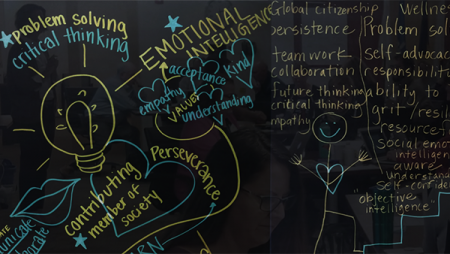 problem solving
critical thinking
EMOTIONAL
INTELLIGENCE
acceptance
kind
empathy
VALUES
understanding
Perseverance
contributing
member of
society
Global citizenship
persistence
teamwork
collaboration
future thinking
critical thinking
mpathy
Wellne
Problem sol
self-advocac
responsibilit
ability to
grit / resil
resourcef
social emo
intelligen
aware
understand
self-confide
"objective
intelligence"